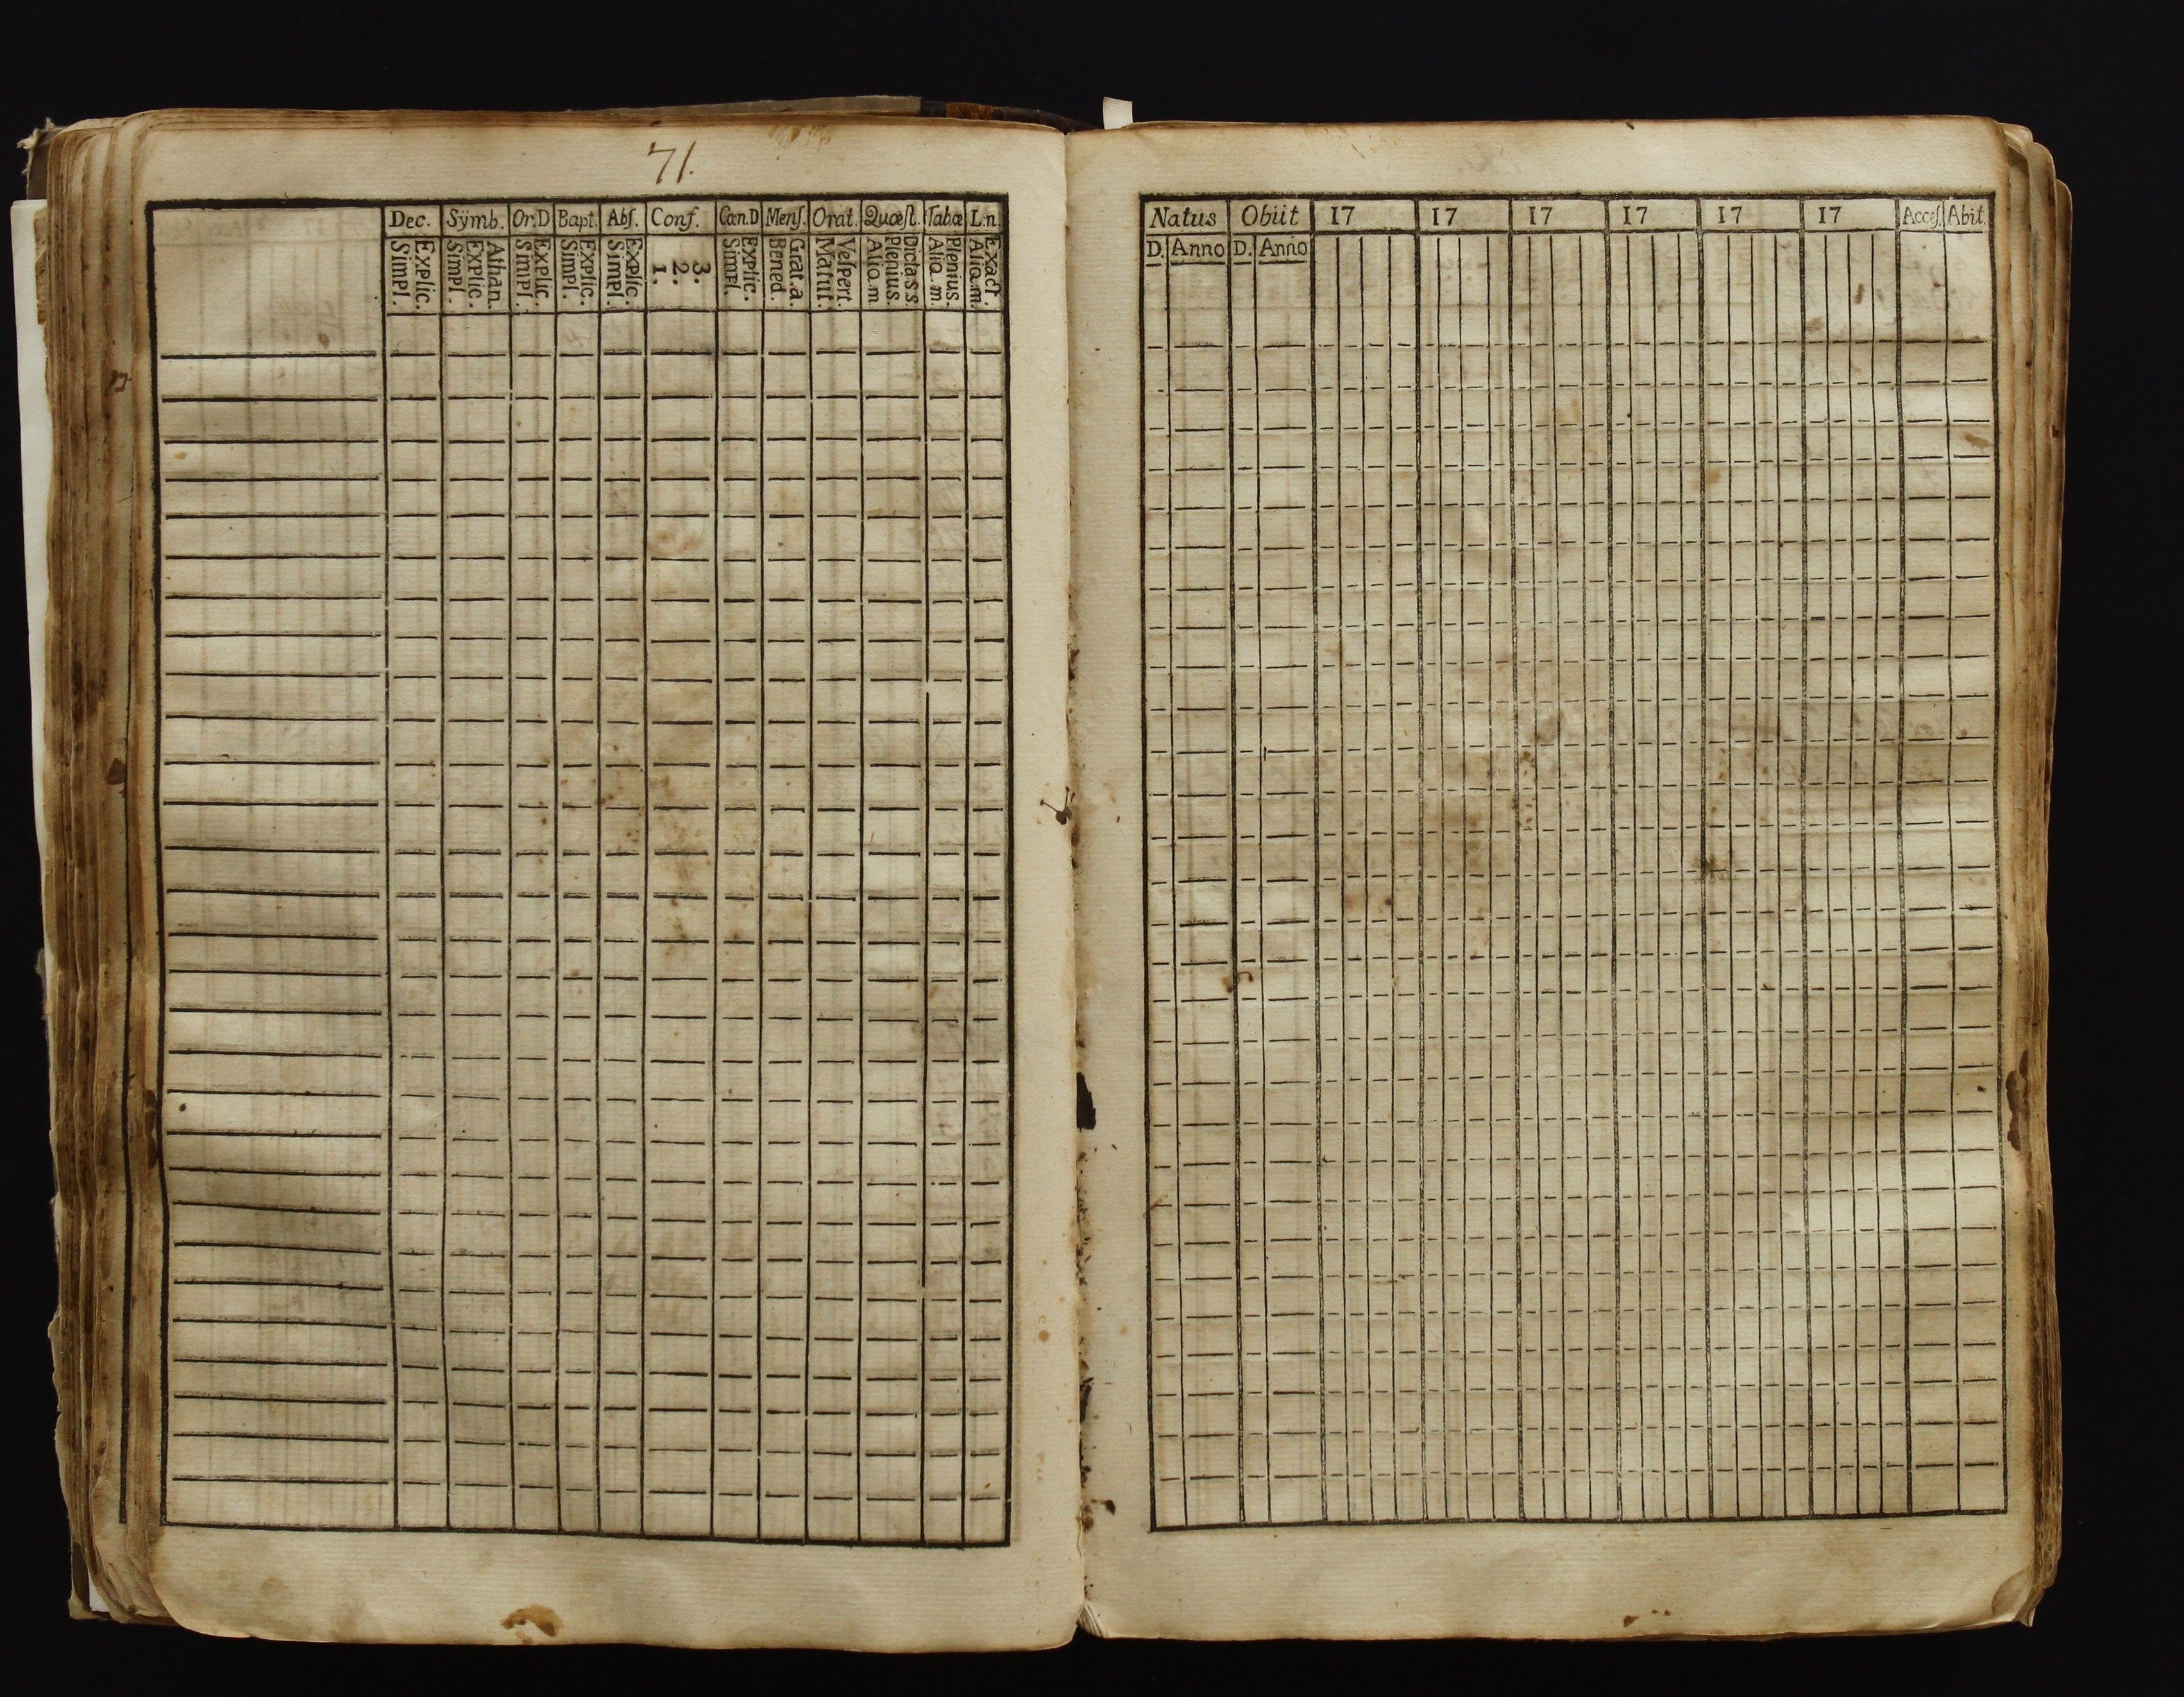 71.
Dec. Sÿmb. Or.D Bapt. Abſ. Conf. Cœn.D Menſ. Orat. Quæſt. Tabæ L.n.
Explic. Simpl. Athan. Explic. Simpl. Explic. Simpl. Explic. Simpl. Explic. Simpl. 3. 2. 1. Explic. Simpl. Grat.a. Bened. Veſpert. Matut. Dicta.s.s. Plenius. Aliq.m. Plenius. Aliq.m. Exact. Aliq.m.
Natus Obiit 17 17 17 17 17 17 Acceſ. Abit.
D. Anno D. Anno